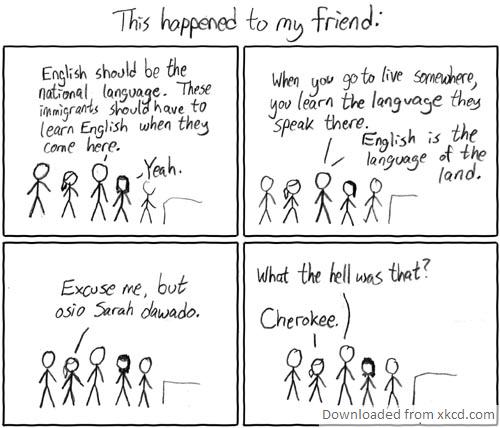 This happened to my friend:
English should be the
national language. These
immigrants should have to
learn English when they
come here.
Yeah.
When you go to live somewhere,
you learn the language they
speak there.
English is the
language of the
land.
Excuse me, but
osio Sarah dawado.
What the hell was that?
Cherokee.
Downloaded from xkcd.com